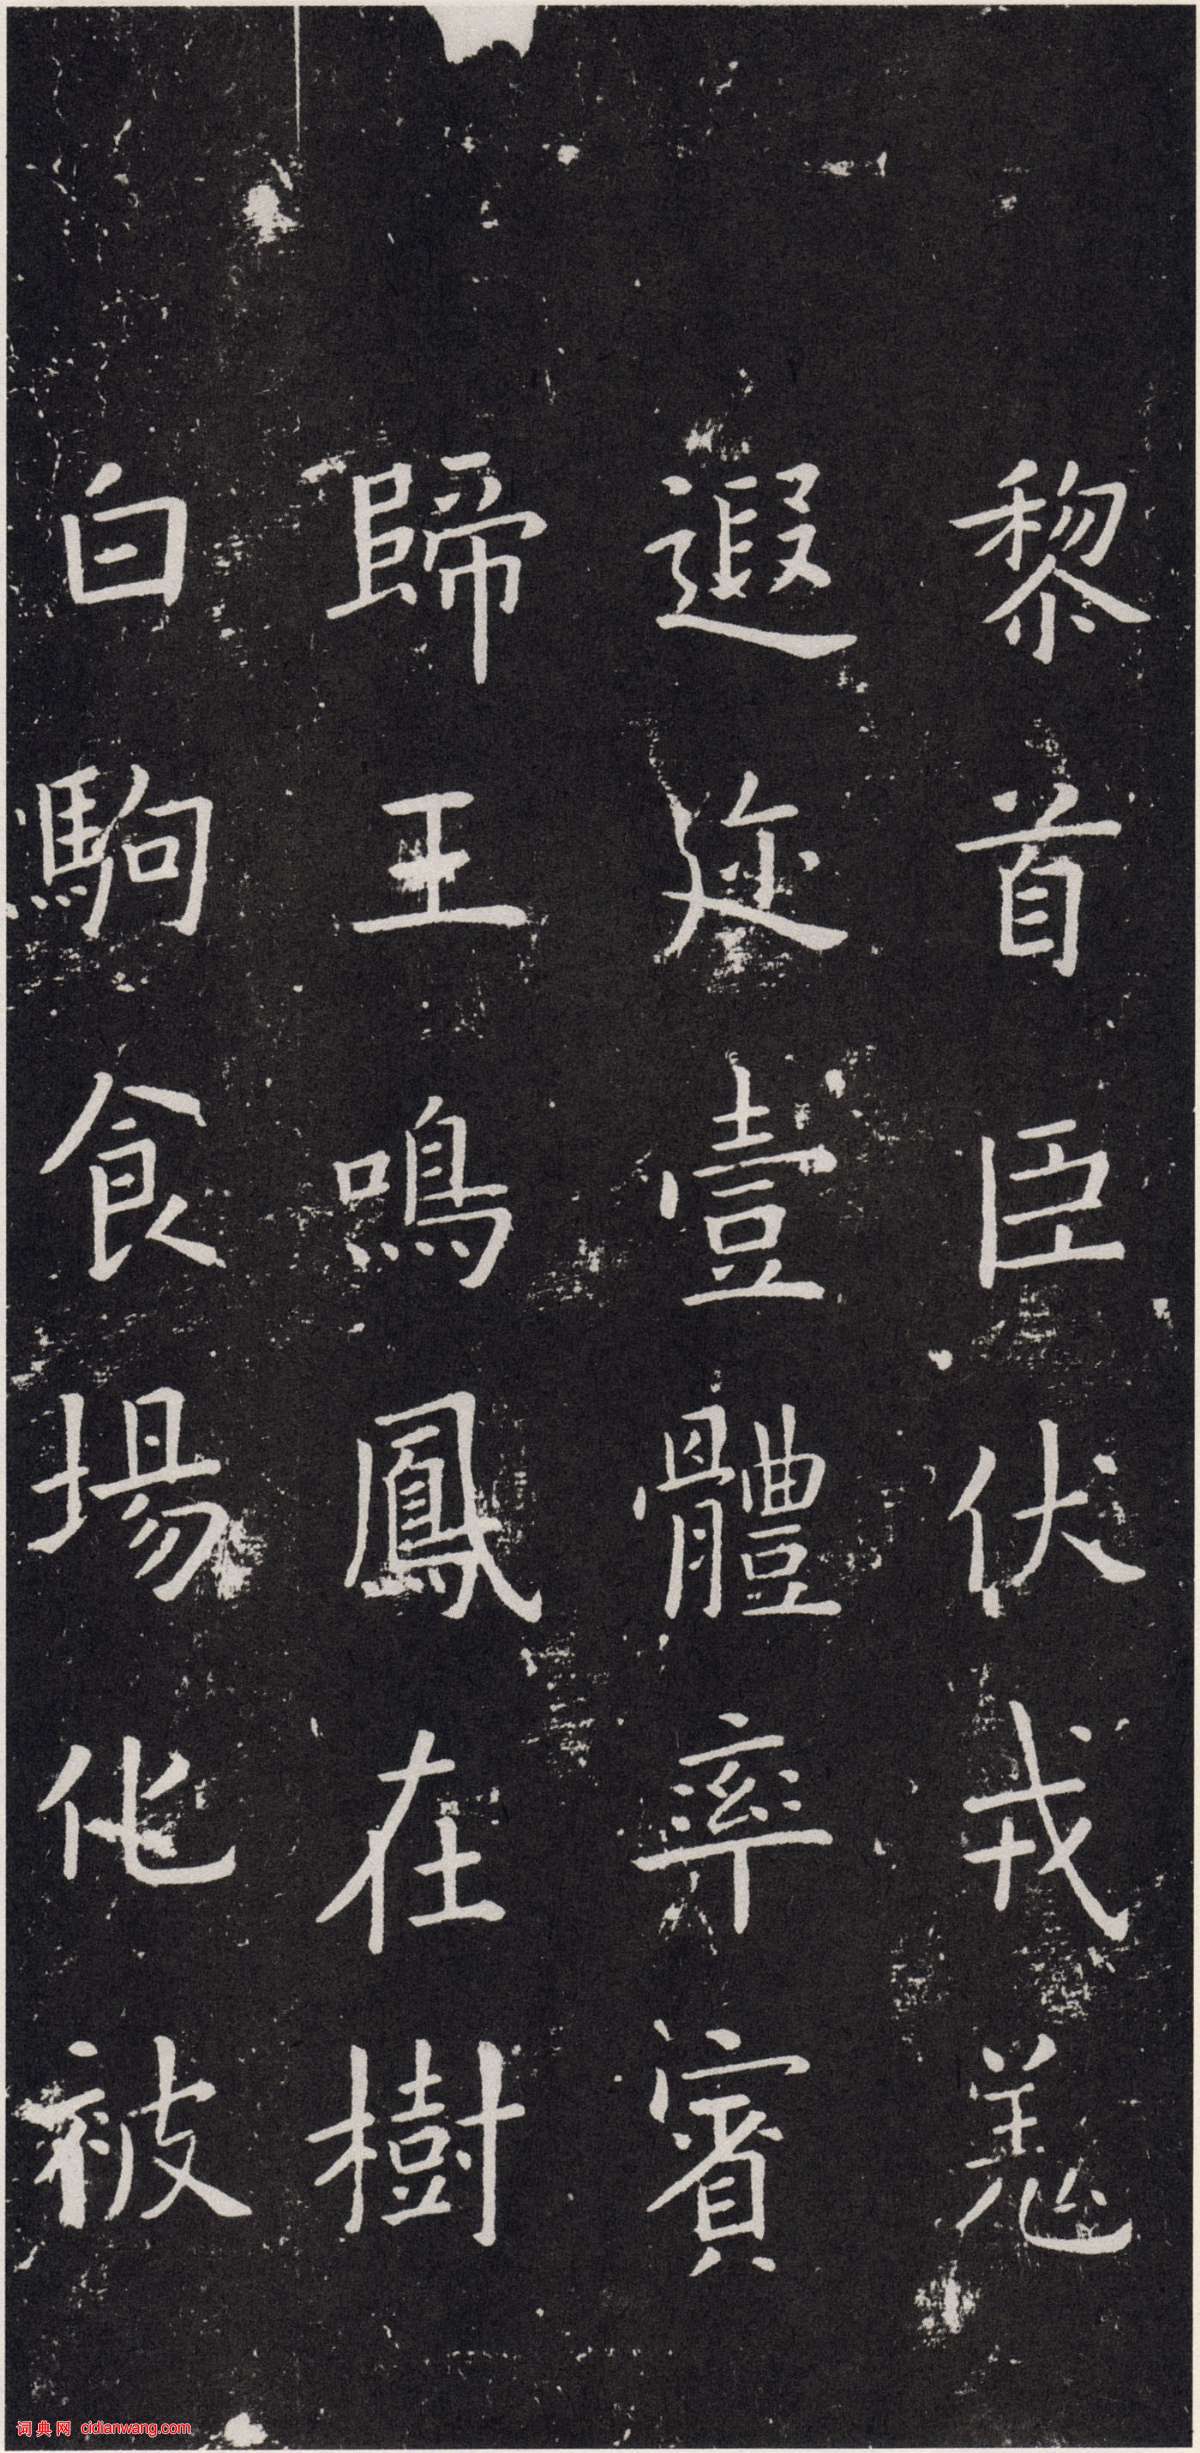 黎首臣伏戎羌
遐迩壹體率賓
歸王鳴鳳在樹
白駒食場化被
词典网 cidianwang.com